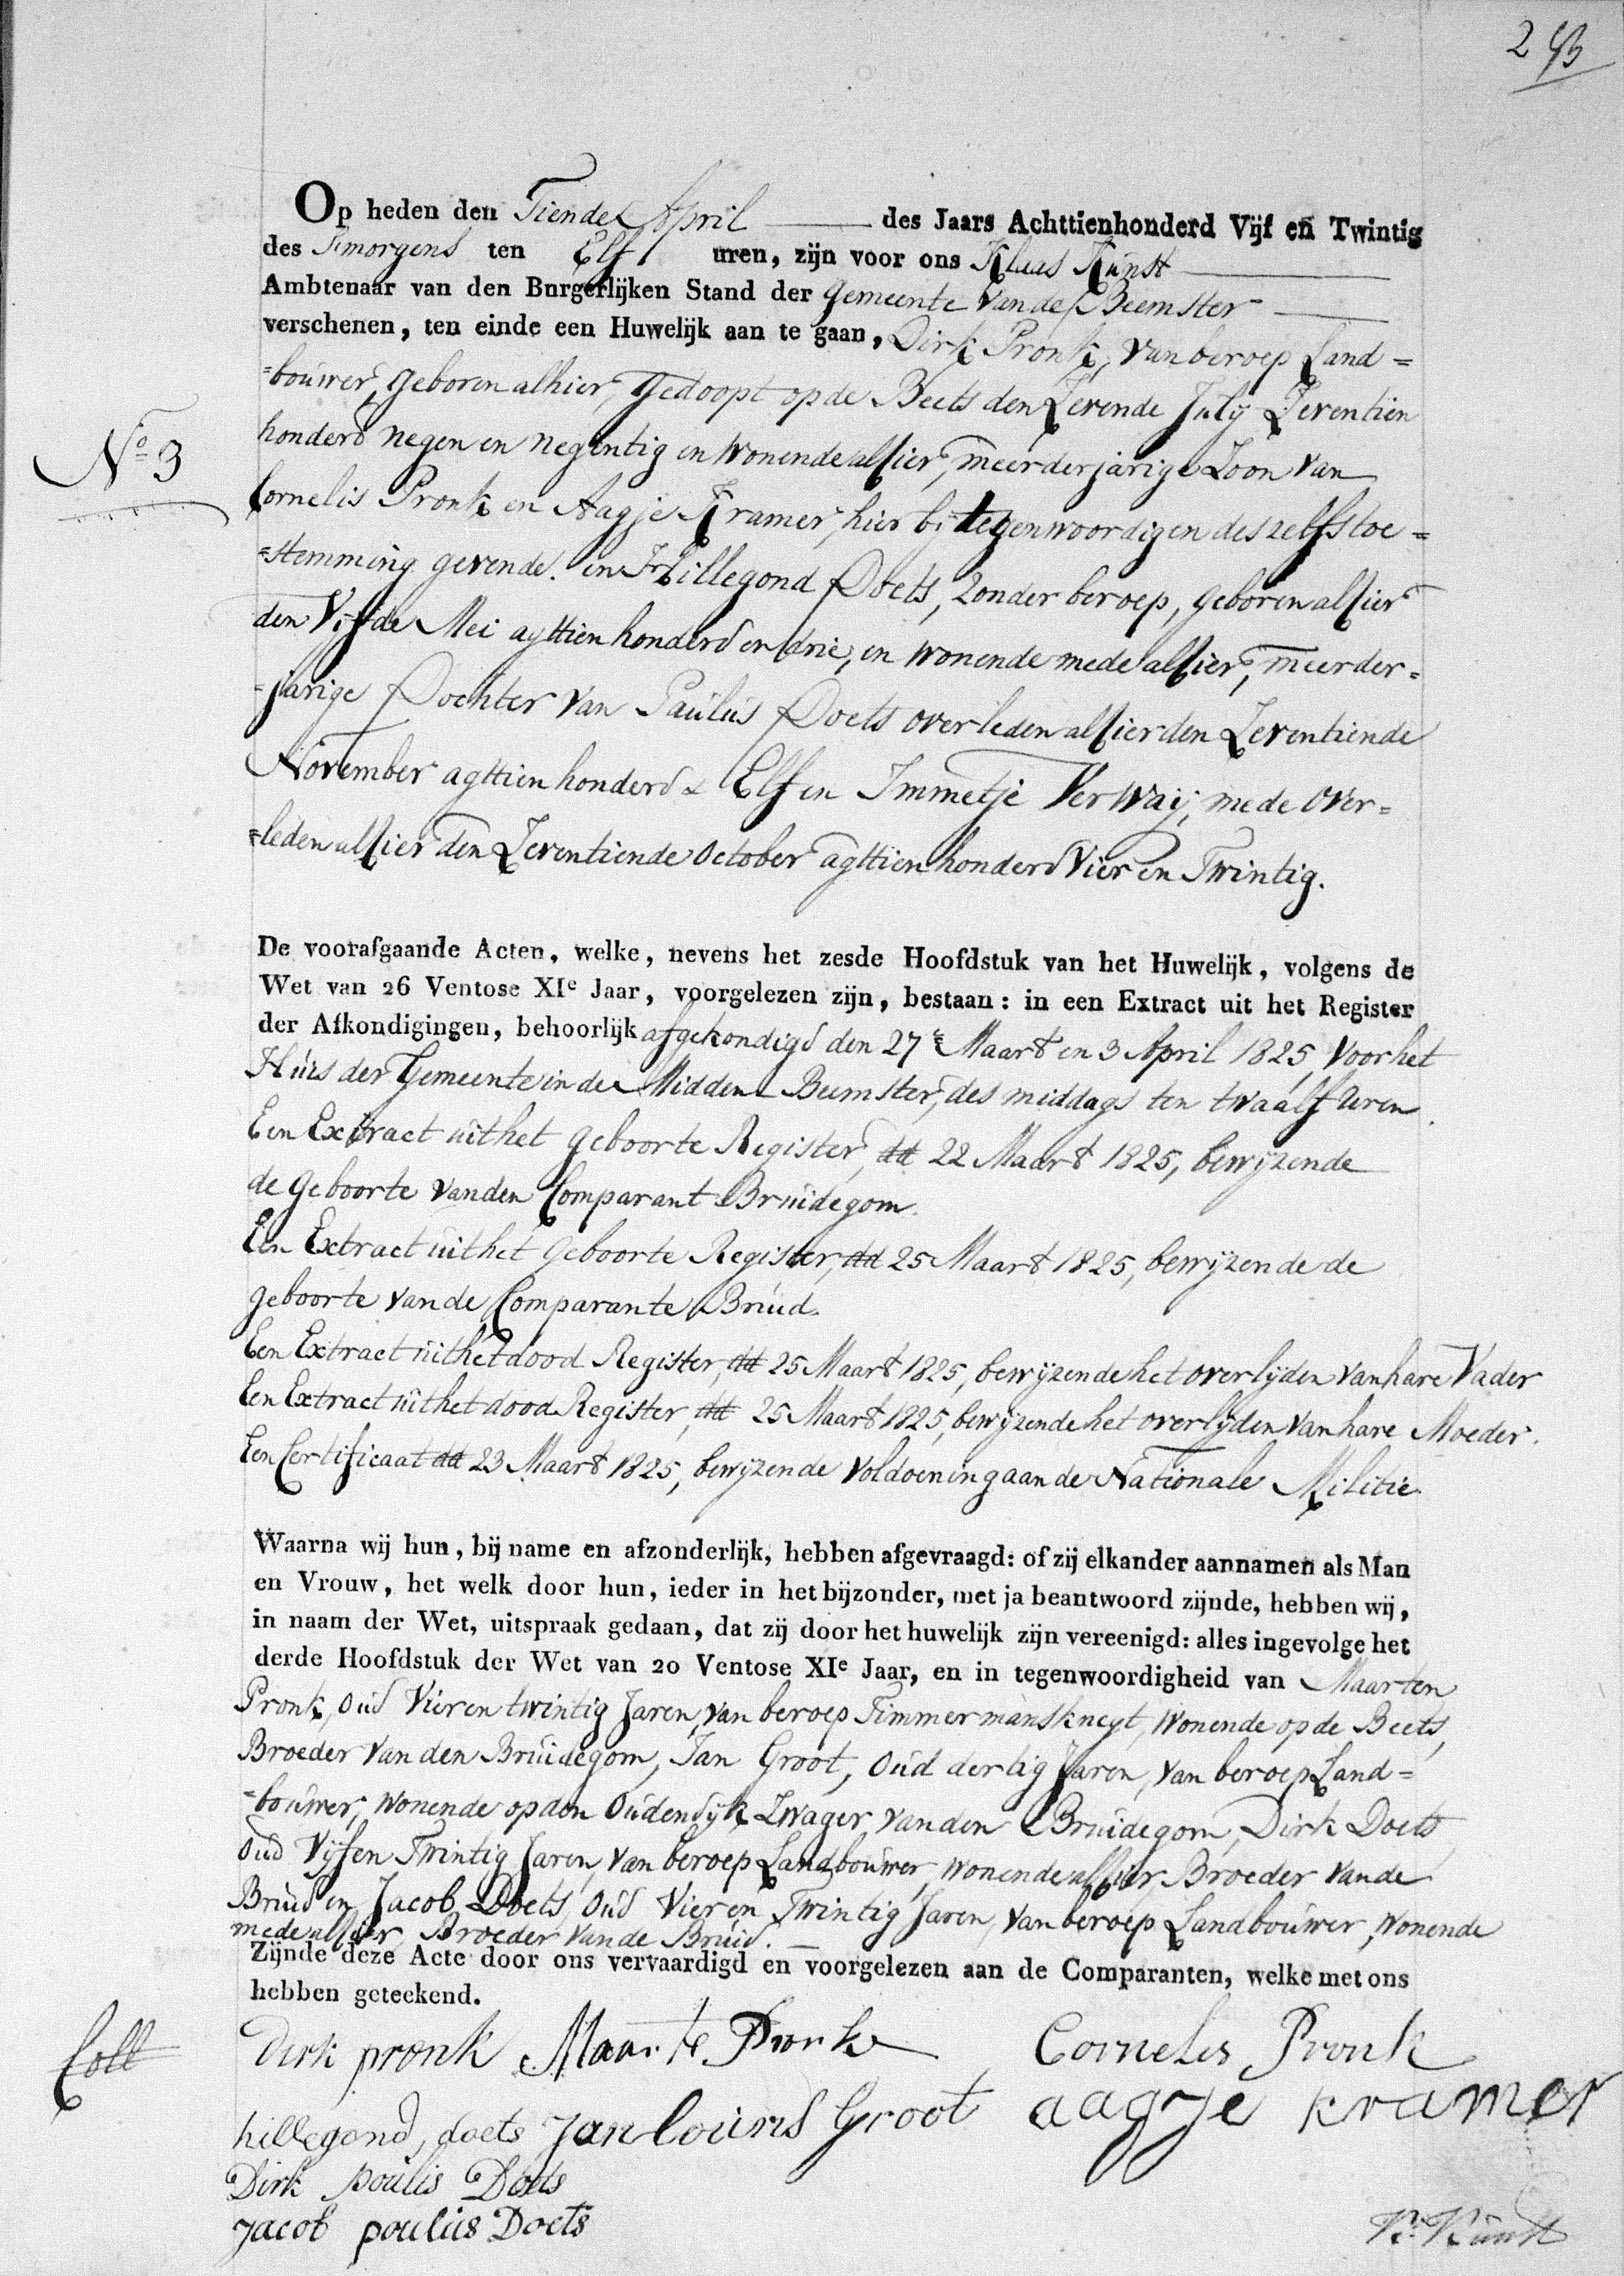 2
Op heden den Tiende April des Jaars Achttienhonderd Vijf en Twintig
des Smorgens ten Elf uren, zijn voor ons Klaas Kunst
Ambtenaar van den Burgerlijken Stand der gemeente van de Beemster
verschenen, ten einde een Huwelijk aan te gaan, Dirk Pronk, van beroep Land=
=bouwer, geboren alhier, gedoopt op de Beets den Zevende July Zeventien
N.o 3
honderd negen en negentig en wonende alhier, meerderjarige Zoon van
Cornelis Pronk en Aagje Kramer, hier bij tegenwoordig en deszelfs toe=
=stemming gevende. en Hillegond Doets, zonder beroep, geboren alhier
den Vijfde Mei agttien honderd en drie, en wonende mede alhier, meerder=
=jarige Dochter van Paulus Doets overleden alhier den Zeventiende
November agttien honderd & Elf en Immetje Verwaij, mede over=
=leden alhier den Zeventiende October agttien honderd Vier en Twintig.
De voorafgaande Acten, welke, nevens het zesde Hoofdstuk van het Huwelijk, volgens de
Wet van 26 Ventose XIe Jaar, voorgelezen zijn, bestaan: in een Extract uit het Register
der Afkondigingen, behoorlijk afgekondigd den 27e Maart en 3 April 1825, voor het
Huis der Gemeente in de Midden Beemster, des middags ten twaalf uren.
Een Extract uit het geboorte Register, dd 22 Maart 1825, bewijzende
de geboorte van den Comparant Bruidegom.
Een Extract uit het geboorte Register, dd 25 Maart 1825, bewijzende de
geboorte van de Comparante Bruid.
Een Extract uit het dood Register, dd 25 Maart 1825, bewijzende het overlijden van hare Vader
Een Extract uit het dood Register, dd 25 Maart 1825, bewijzende het overlijden van hare Moeder.
Een Certificaat dd 23 Maart 1825, bewijzende voldoening aan de Nationale Militie.
Waarna wij hun, bij name en afzonderlijk, hebben afgevraagd: of zij elkander aannamen als Man
en Vrouw, het welk door hun, ieder in het bijzonder, met ja beantwoord zijnde, hebben wij,
in naam der Wet, uitspraak gedaan, dat zij door het huwelijk zijn vereenigd: alles ingevolge het
derde Hoofdstuk der Wet van 20 Ventose XIe Jaar, en in tegenwoordigheid van Maarten
Pronk, oud Vier en twintig Jaren, van beroep Timmermansknegt, wonende op de Beets,
Broeder van den Bruidegom, Jan Groot, oud dertig Jaren, van beroep Land=
=bouwer, wonende op den Oudendijk Zwager van den Bruidegom, Dirk Doets
oud Vijf en Twintig Jaren, van beroep Landbouwer, wonende alhier Broeder van de
Bruid en Jacob Doets, oud Vier en Twintig Jaren, van beroep Landbouwer, wonende
mede alhier, Broeder van de Bruid.
Zijnde deze Acte door ons vervaardigd en voorgelezen aan de Comparanten, welke met ons
hebben geteekend.
Coll
Dirk pronk Maarte Pronk Cornelis Pronk
hillegond doets Jan louris Groot aagje kramer
Dirk poulis Doets
Jacob poulus Doets
K. Kunst